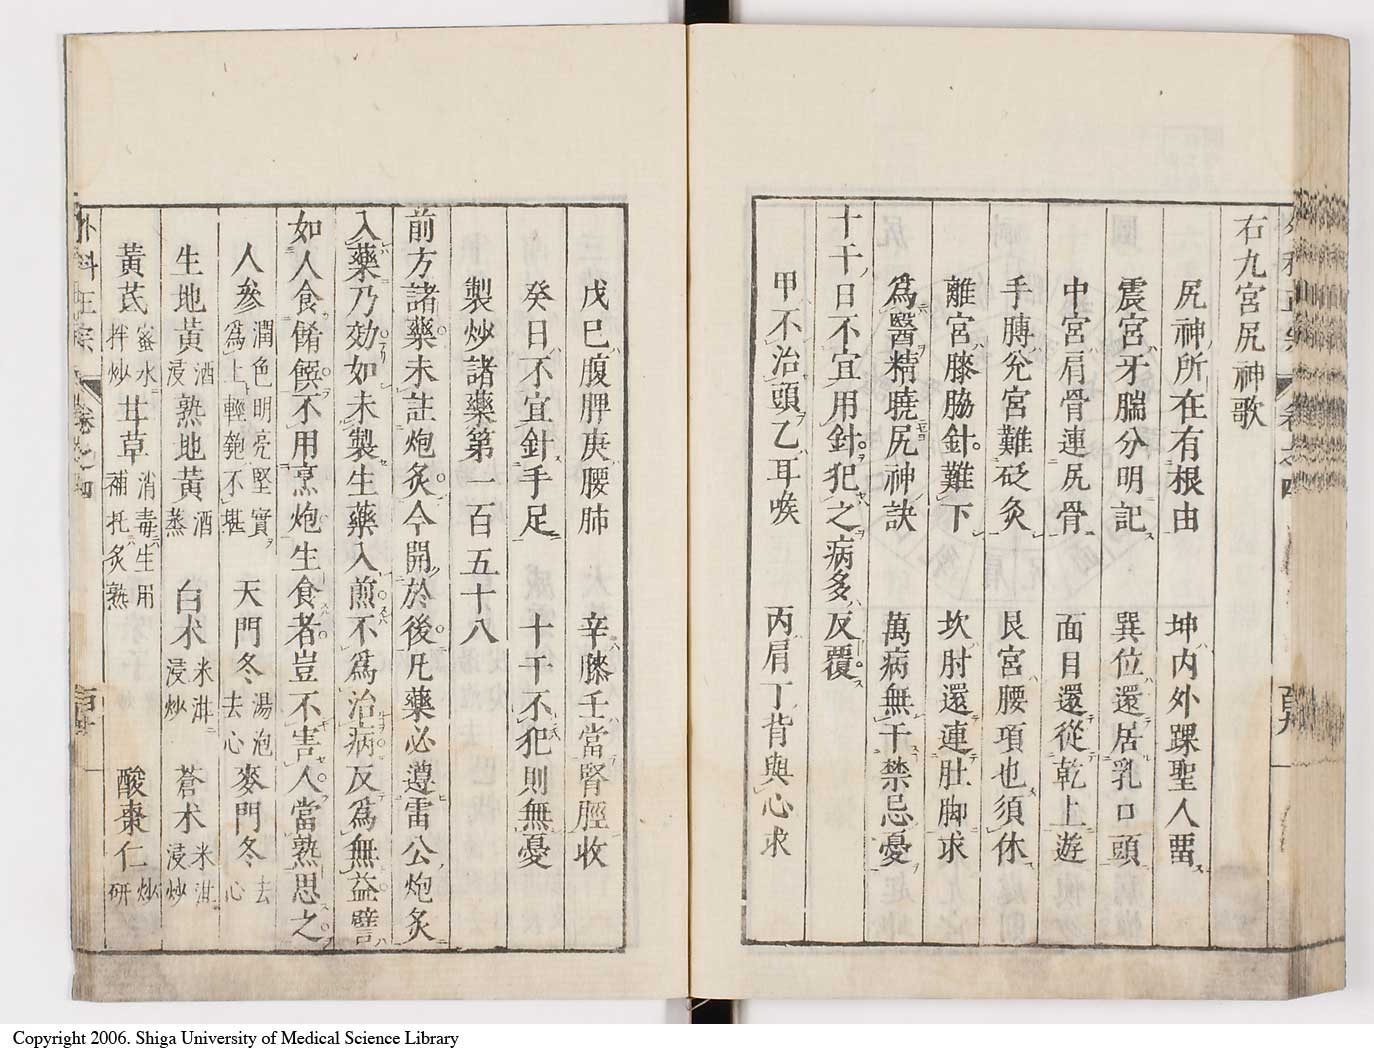 右九宮尻神歌
尻神所在有根由　坤内外踝聖人畱
震宮牙腨分明記　巽位還居乳口頭
中宮肩骨連尻骨　面目還從乾上遊
手膊兊宮難砭灸　艮宮腰項也須休
離宮膝脇針難下　坎肘還連肚脚求
爲醫精曉尻神訣　萬病無干禁忌憂
十干日不宜用針犯之病多反覆
甲不治頭乙耳喉　丙肩丁背與心求
戊巳腹脾庚腰肺　辛膝壬當腎脛收
癸日不宜針手足　十干不犯則無憂
製炒諸藥第一百五十八
前方諸藥未註炮炙今開於後凡藥必遵雷公炮炙
入藥乃効如未製生藥入煎不爲治病反爲無益譬
如人食餚饌不用烹炮生食者豈不害人當熟思之
人參潤色明亮堅實爲上輕匏不堪　天門冬湯泡去心　麥門冬去心
生地黃酒浸　熟地黃酒蒸　白术米泔浸炒　蒼术米泔浸炒
黃芪蜜水拌炒　甘草消毒生用補托炙熟　酸棗仁炒研
外科正宗　卷之四
Copyright 2006. Shiga University of Medical Science Library